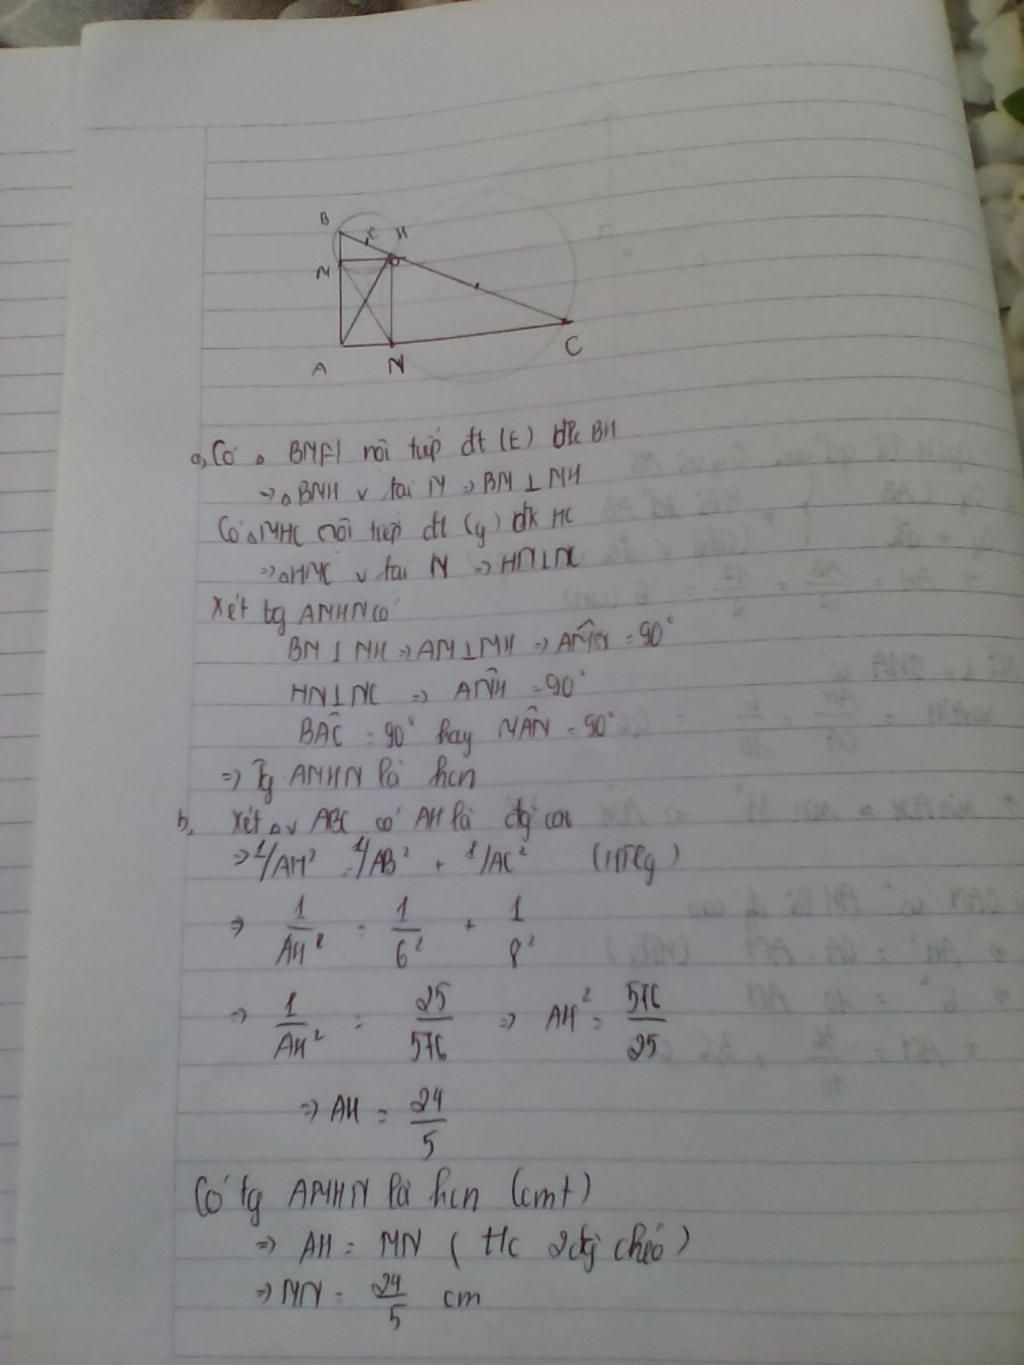 B
E H
M
A N C
a, Có △ BMH nội tiếp đt (E) đk BH
=> △BMH v tại M => BM ⊥ MH
Có △NHC nội tiếp đt (y) đk HC
=> △HNC v tại N => HN⊥NC
Xét tg AMHN có
BM ⊥ MH => AM⊥MH => AM̂H = 90°
HN⊥NC => AN̂H = 90°
BÂC = 90° hay MÂN = 90°
=> Tg AMHN là hcn
b, Xét △v ABC có AH là đg cao
=> 1/AH² = 1/AB² + 1/AC² (HTLg)
=> 1/AH² = 1/6² + 1/8²
=> 1/AH² = 25/576 => AH² = 576/25
=> AH = 24/5
Có tg AMHN là hcn (cmt)
=> AH = MN ( t/c 2 đg chéo )
=> MN = 24/5 cm